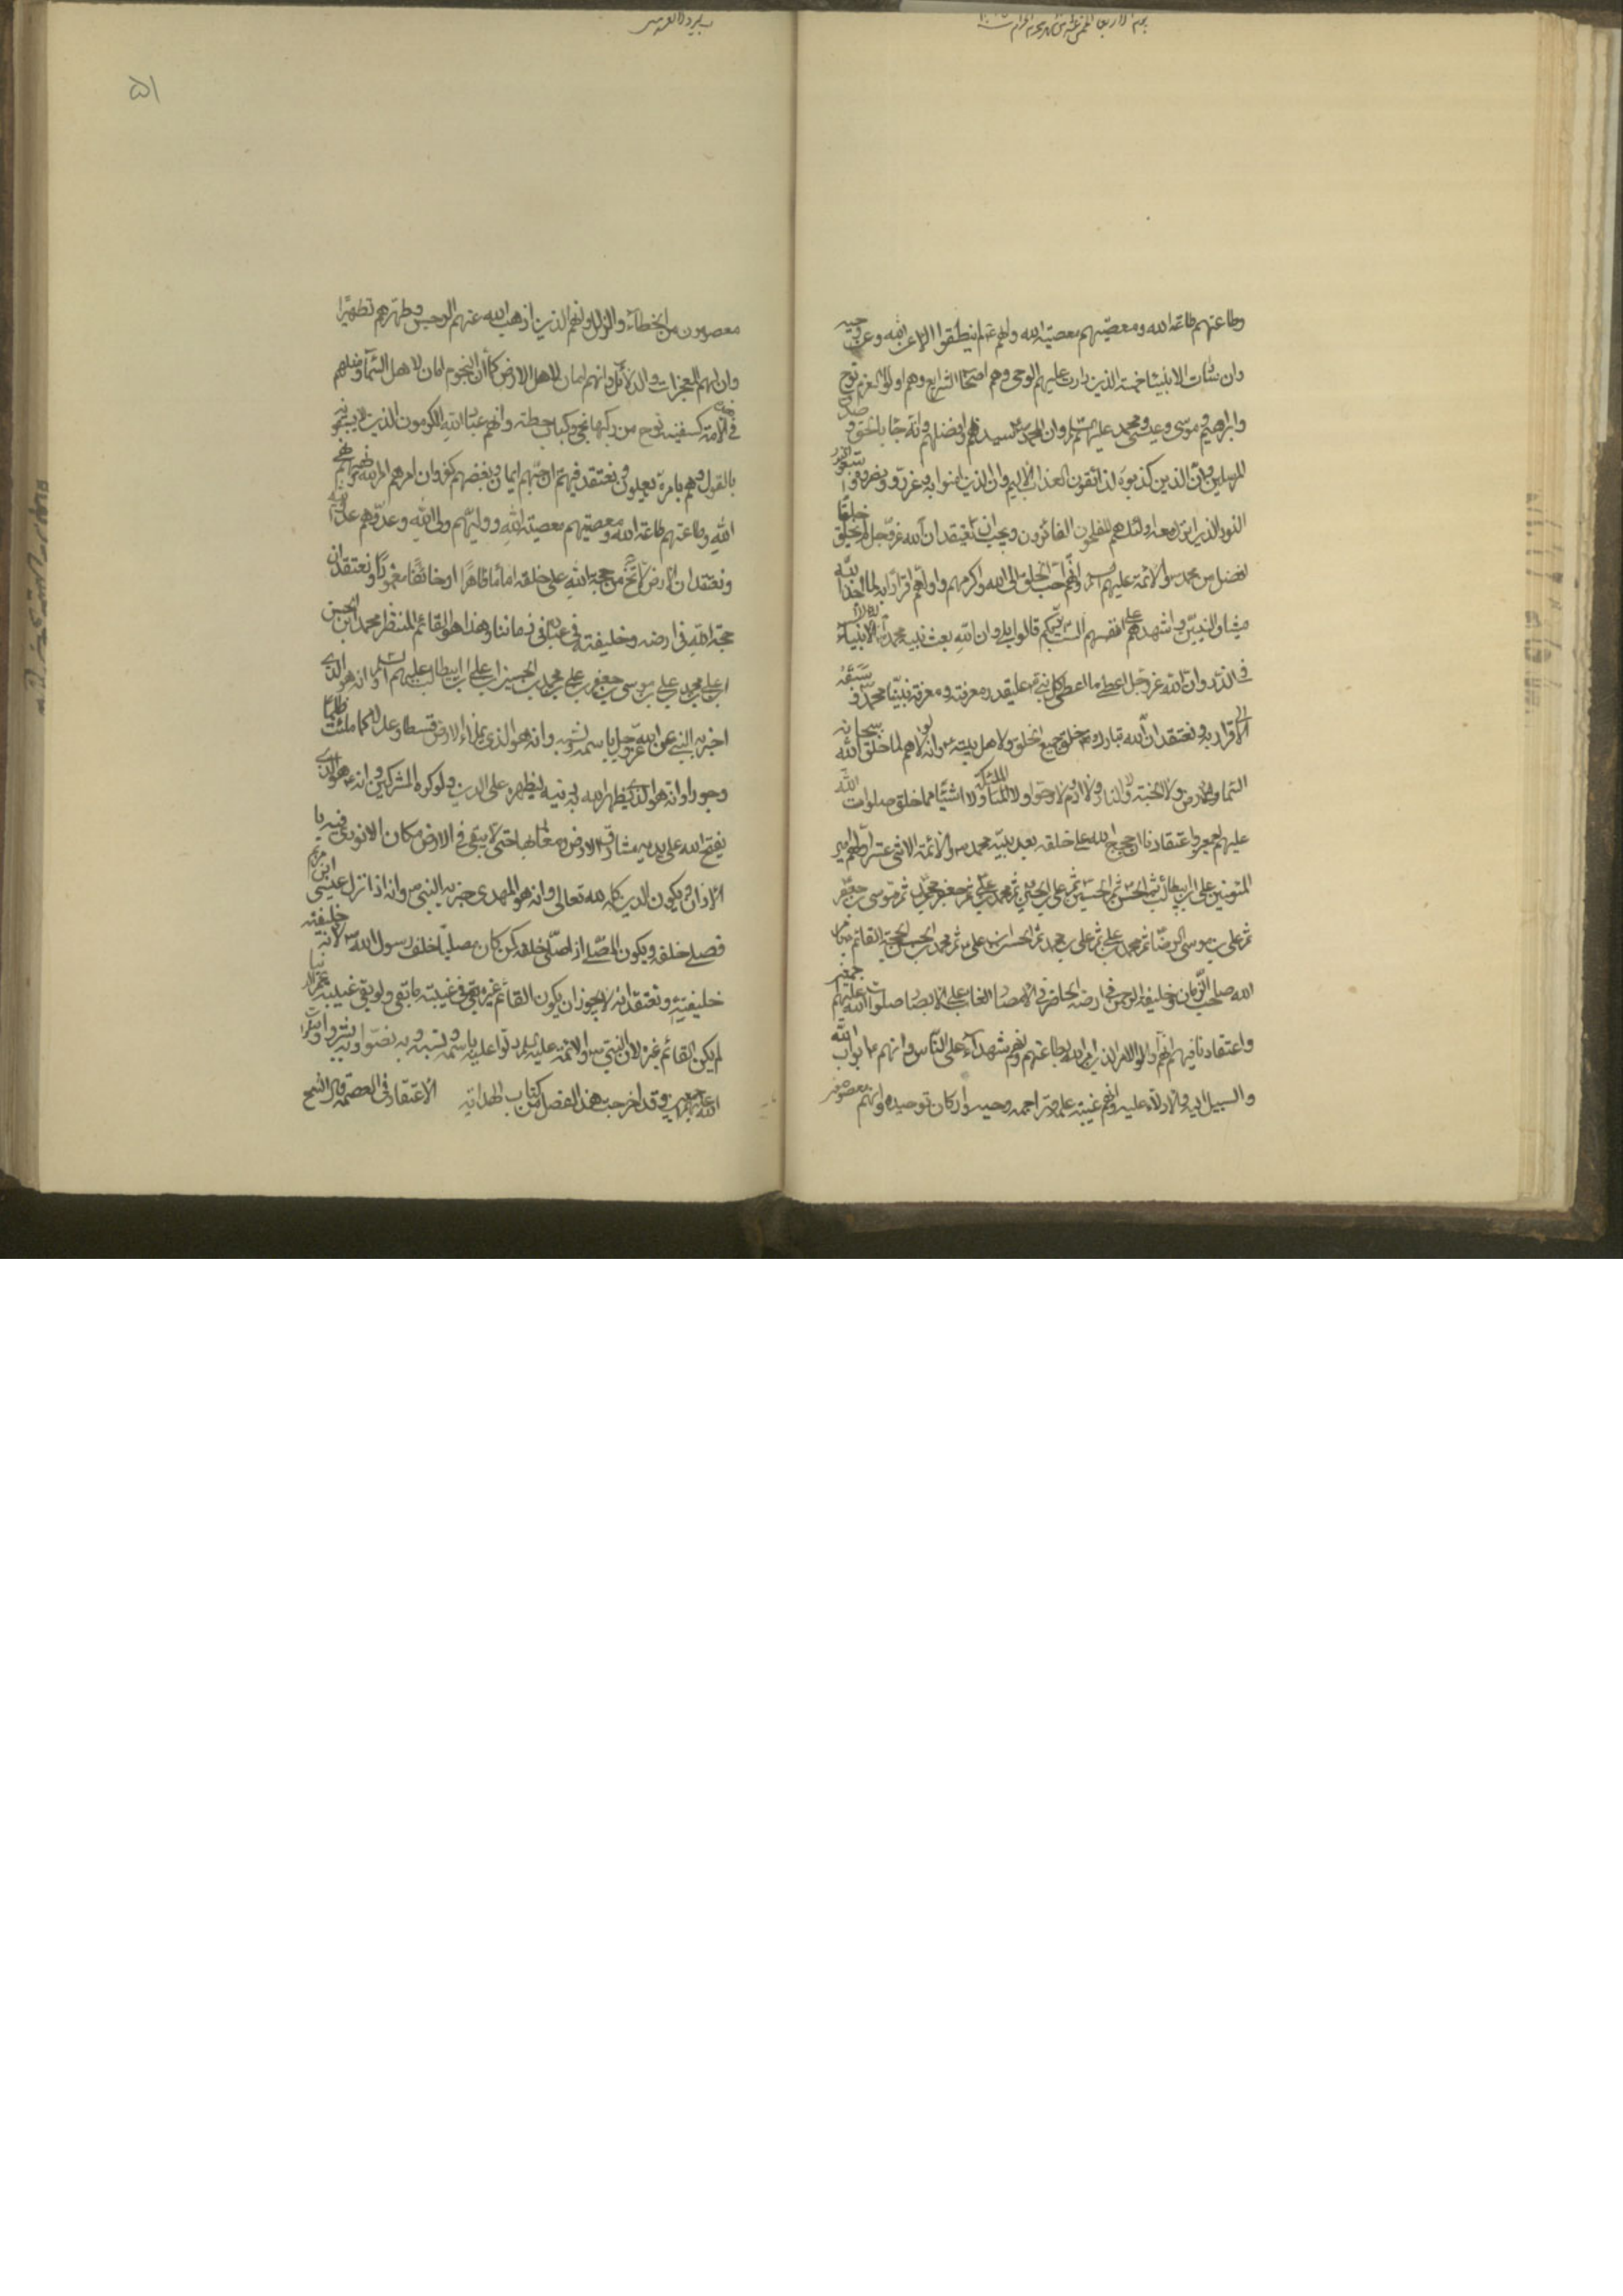 وطاعتهم طاعة الله ومعصيتهم معصية الله وانهم لم ينطقوا الا عن الله وعن وحيه
وان سادات الانبياء خمسة الذين دارت عليهم الوحى وهم اصحاب الشرايع وهم اولو العزم نوح
وابراهيم وموسى وعيسى ومحمد عليهم السلم وان محمد سيدهم وافضلهم وانه جاء بالحق وصدق
المرسلين وان الذين كذبوه لذائقون العذاب الاليم وان الذين امنوا به وعزروه ونصروه واتبعوا
النور الذى انزل معه اولئك هم المفلحون الفائزون ويجب ان نعتقد ان الله عز وجل لم يخلق خلقا
افضل من محمد والائمة عليهم السلم وانهم احب الخلق الى الله واكرمهم واولهم اقرارا به لما اخذ الله
ميثاق النبيين واشهدهم على انفسهم الست بربكم قالوا بلى وان الله بعث نبيه محمدا الى الانبياء
فى الذر وان الله عز وجل اعطى ما اعطى كل نبى على قدر معرفته ومعرفة نبينا محمد وسبقه
الى الاقرار به ونعتقد ان الله تبارك خلق جميع الخلق له ولاهل بيته وانه لولاهم لما خلق الله سبحانه
السماء والارض ولا الجنة ولا النار ولا ادم ولا حوا ولا الملئكة ولا شيئا مما خلق صلوات الله
عليهم اجمعين واعتقادنا ان حجج الله على خلقه بعد نبيه محمد الائمة الاثنى عشر اولهم امير
المؤمنين على ابن ابيطالب ثم الحسن ثم الحسين ثم على بن الحسين ثم محمد بن على ثم جعفر بن محمد ثم موسى بن جعفر
ثم على بن موسى الرضا ثم محمد بن على ثم على بن محمد ثم الحسن بن على ثم محمد بن الحسن الحجة القائم بامر
الله صاحب الزمان وخليفة الرحمن فى ارضه الحاضر فى الامصار الغائب على الابصار صلوات الله عليهم اجمعين
واعتقادنا فيهم انهم اولو الامر الذين امر الله بطاعتهم وانهم شهداء على الناس وانهم ابواب الله
والسبيل اليه والادلاء عليه وانهم عيبة علمه وتراجمة وحيه واركان توحيده وانهم معصومون
۵۱
معصومون من الخطاء والزلل وانهم الذين اذهب الله عنهم الرجس وطهرهم تطهيرا
وان لهم المعجزات والدلائل وانهم امان لاهل الارض كما ان النجوم امان لاهل السماء ومثلهم
فى هذه الامة كسفينة نوح من ركبها نجى وكباب حطة وانهم عباد الله المكرمون الذين لا يسبقونه
بالقول وهم بامره يعملون ونعتقد فيهم ان حبهم ايمان وبغضهم كفر وان امرهم امر الله ونهيهم نهى
الله وطاعتهم طاعة الله ومعصيتهم معصية الله ووليهم ولى الله وعدوهم عدو الله
ونعتقد ان الارض لا تخلو من حجة الله على خلقه اماما ظاهرا او خائفا مغمورا ونعتقد ان
حجة الله فى ارضه وخليفته فى عباده فى زماننا هذا هو القائم المنتظر محمد ابن الحسن
ابن على بن محمد بن على بن موسى بن جعفر بن محمد بن على بن الحسين ابن على ابن ابيطالب عليهم السلم وانه هو الذى
اخبر به النبى عن الله عز وجل باسمه ونسبه وانه هو الذى يملاء الارض قسطا وعدلا كما ملئت ظلما
وجورا وانه هو الذى يظهر الله به دينه ليظهره على الدين ولو كره المشركون وانه هو الذى
يفتح الله على يديه مشارق الارض ومغاربها حتى لا يبقى فى الارض مكان الا نودى فيه با
الاذان ويكون الدين كله لله تعالى وانه هو المهدى الذى اخبر به النبى وانه اذا نزل عيسى ابن مريم
فصلى خلفه ويكون المصلى اذا صلى خلفه كمن كان مصليا خلف رسول الله لانه خليفته
خليفته ونعتقد انه لا يجوز ان يكون القائم غيره بقى فى غيبته ما بقى ولو بقى غيبته عمر الدنيا
لم يكن القائم غيره لان النبى والائمة عليهم السلم دلوا عليه باسمه ونسبه وبه نصوا وبه بشروا صلوات
الله عليهم اجمعين وقد اخرجت هذا الفصل من كتاب الهداية الاعتقاد فى العصمة قال الشيخ